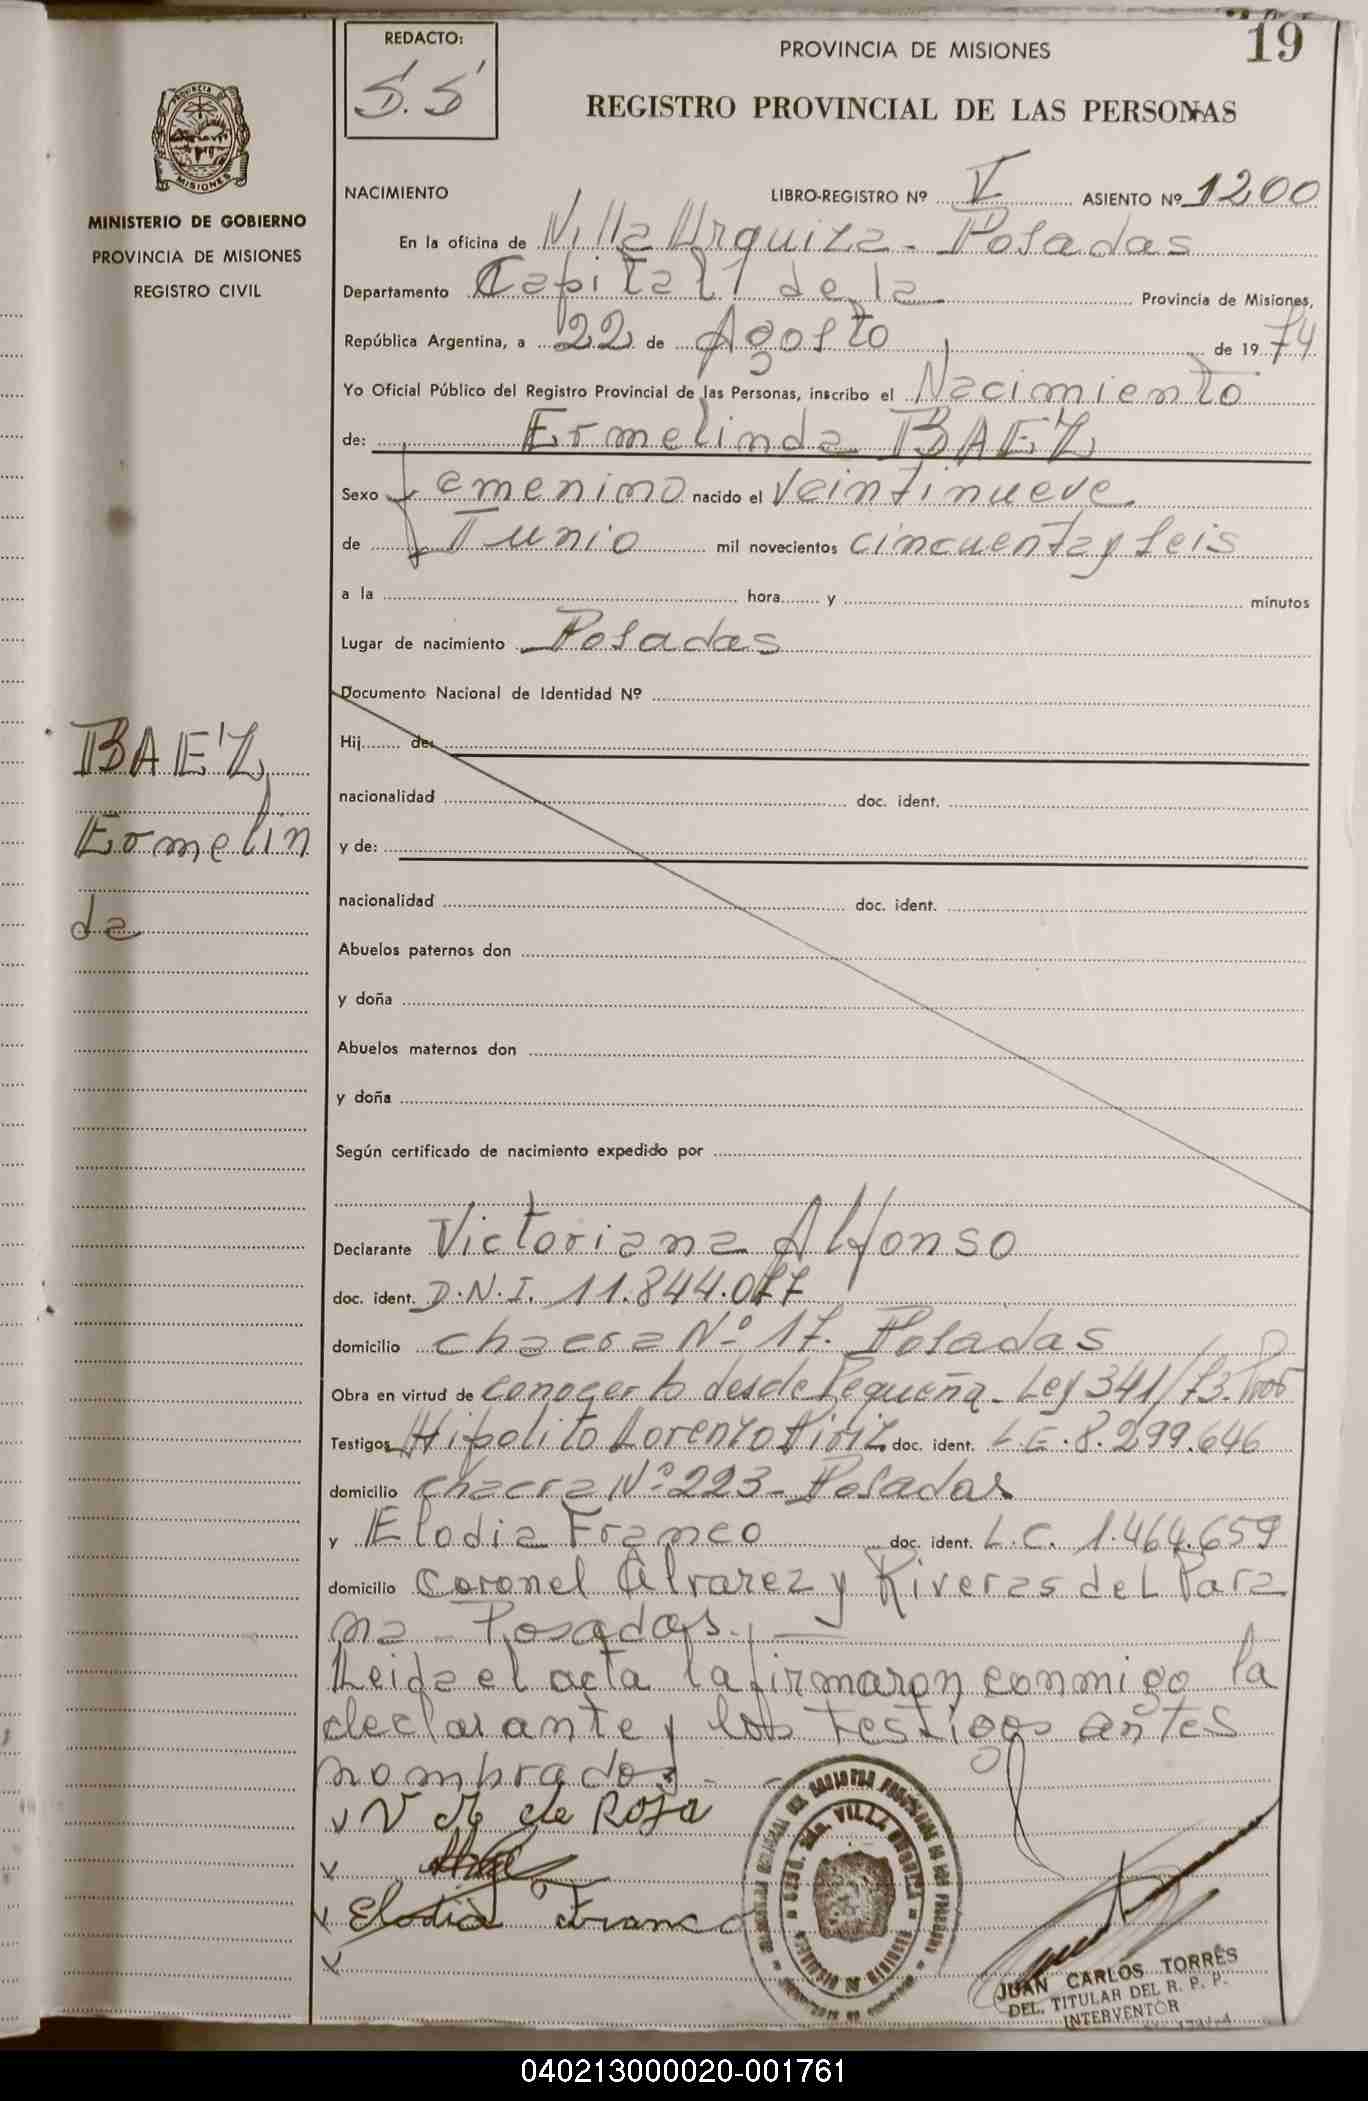 19
REDACTO:
S.S
PROVINCIA DE MISIONES
REGISTRO PROVINCIAL DE LAS PERSONAS
MISIONES
MINISTERIO DE GOBIERNO
PROVINCIA DE MISIONES
REGISTRO CIVIL
NACIMIENTO LIBRO-REGISTRO Nº V ASIENTO Nº 1200
En la oficina de Villa Urquiza - Posadas
Departamento Capital de la Provincia de Misiones,
República Argentina, a 22 de Agosto de 1974
Yo Oficial Público del Registro Provincial de las Personas, inscribo el Nacimiento
de: Ermelinda BAEZ
Sexo femenino nacido el veintinueve
de Junio mil novecientos cincuenta y seis
a la hora y minutos
Lugar de nacimiento Posadas
Documento Nacional de Identidad Nº
Hij de:
nacionalidad doc. ident.
y de:
nacionalidad doc. ident.
Abuelos paternos don
y doña
Abuelos maternos don
y doña
Según certificado de nacimiento expedido por
BAEZ
Ermelin
da
Declarante Victoriana Alfonso
doc. ident. D.N.I. 11.844.077
domicilio chacra Nº 17. Posadas
Obra en virtud de conocerlo desde Pequeña - Ley 341/73.
Testigos Hipolito Lorenzo doc. ident. L.E. 8.299.646
domicilio chacra Nº 223 - Posadas
y Elodia Franco doc. ident. L.C. 1.464.659
domicilio Coronel Alvarez y Riveras del Para
na - Posadas.
Leida el acta la firmaron conmigo la
declarante y los testigos antes
nombrados.
V de Roja
Elodia Franco
JUAN CARLOS TORRES
DEL. TITULAR DEL R. P. P.
INTERVENTOR
040213000020-001761